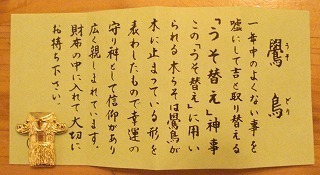 鷽鳥
うそ どり
一年中のよくない事を
嘘にして吉と取り替える
「うそ替え」神事
この「うそ替え」に用い
られる木うそは鷽鳥が
木に止まっている形を
表わしたもので幸運の
守り神として信仰があり
広く親しまれています。
財布の中に入れて大切に
お持ち下さい。